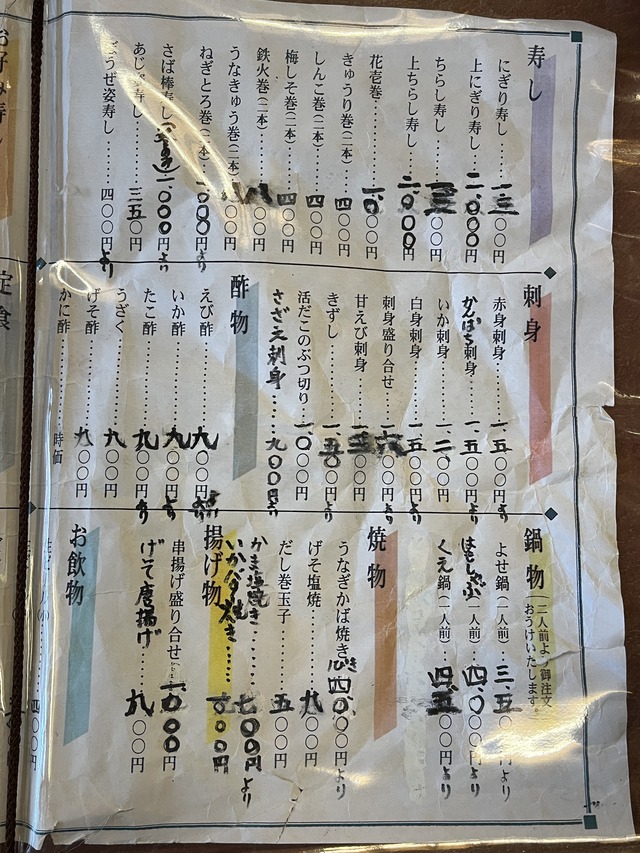 寿し
にぎり寿し……一三〇〇円
上にぎり寿し…二、〇〇〇円
ちらし寿し……一三〇〇円
上ちらし寿し…二、〇〇〇円
花壱巻…………一、〇〇〇円
きゅうり巻(二本)……四〇〇円
しんこ巻(二本)……四〇〇円
梅しそ巻(二本)……四〇〇円
鉄火巻(二本)……八〇〇円
うなきゅう巻(二本)……八〇〇円
ねぎとろ巻(二本)…一、〇〇〇円より
さば棒寿し…一、〇〇〇円より
寿し……三五〇円
姿寿し……四〇〇円より
刺身
赤身刺身………一、五〇〇円より
かんぱち刺身……一、五〇〇円より
いか刺身………一、二〇〇円
白身刺身………一、五〇〇円より
刺身盛り合せ……〇〇円より
甘えび刺身……〇〇円
きずし…………〇〇円より
活だこのぶつ切り…一、〇〇〇円
さざえ刺身……九〇〇円より
酢物
えび酢…………九〇〇円
いか酢…………九〇〇円より
たこ酢…………九〇〇円より
うざく…………九〇〇円
げそ酢…………九〇〇円
かに酢…………時価
鍋物(二人前より御注文
おうけいたします。)
よせ鍋(一人前)…三、五〇〇円より
はもしゃぶ(一人前)…四、〇〇〇円より
くえ鍋(一人前)…四、五〇〇円より
焼物
うなぎかば焼き…四、〇〇〇円より
げそ塩焼………九〇〇円
だし巻玉子……五〇〇円
かま塩焼き……七〇〇円より
揚げ物
串揚げ盛り合せ…一、〇〇〇円
げそ唐揚げ……九〇〇円
お飲物
四〇〇円
お好み寿し
定食